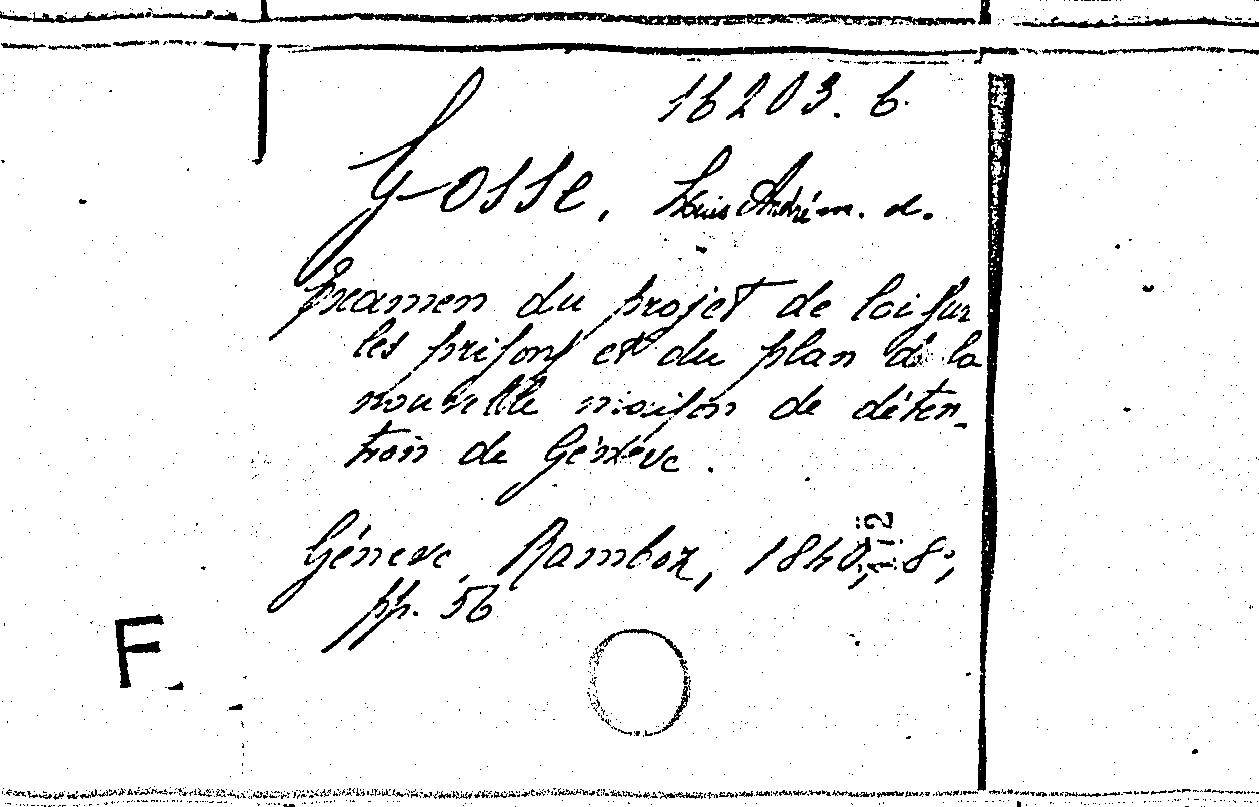 16203. 6.
Gosse, Louis André m. d.
Examen du projet de loi sur
les prisons et du plan de la
nouvelle maison de déten-
tion de Génève.
Génève, Ramboz, 1840, 8°,
pp. 56
F.